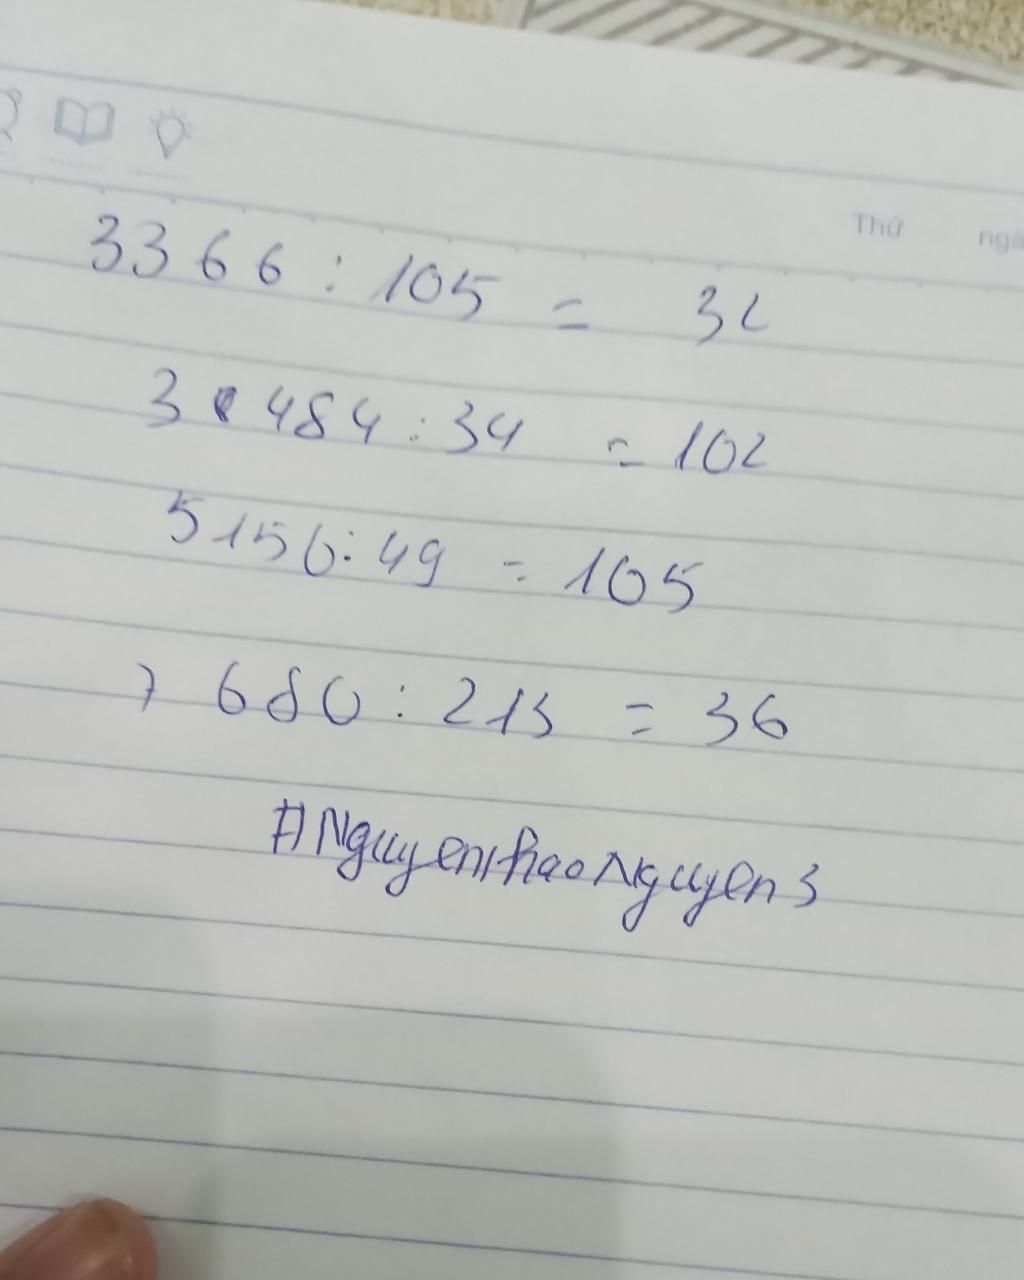 Thứ ngà
3366 : 105 = 32
3 484 : 34 = 102
5156 : 49 = 105
7 680 : 213 = 36
#NguyenthaoNguyen3